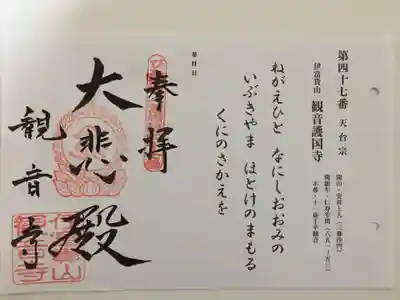 第四十七番 天台宗
伊富貴山 観音護国寺
開山・安祥上人(三修沙門)
開創年・仁寿年間(八五一~五三)
本尊・十一面千手観音
ねがえひと なにしおおみの
いぶきやま ほとけのまもる
くにのさかえを
奉拝
大悲殿
観音寺